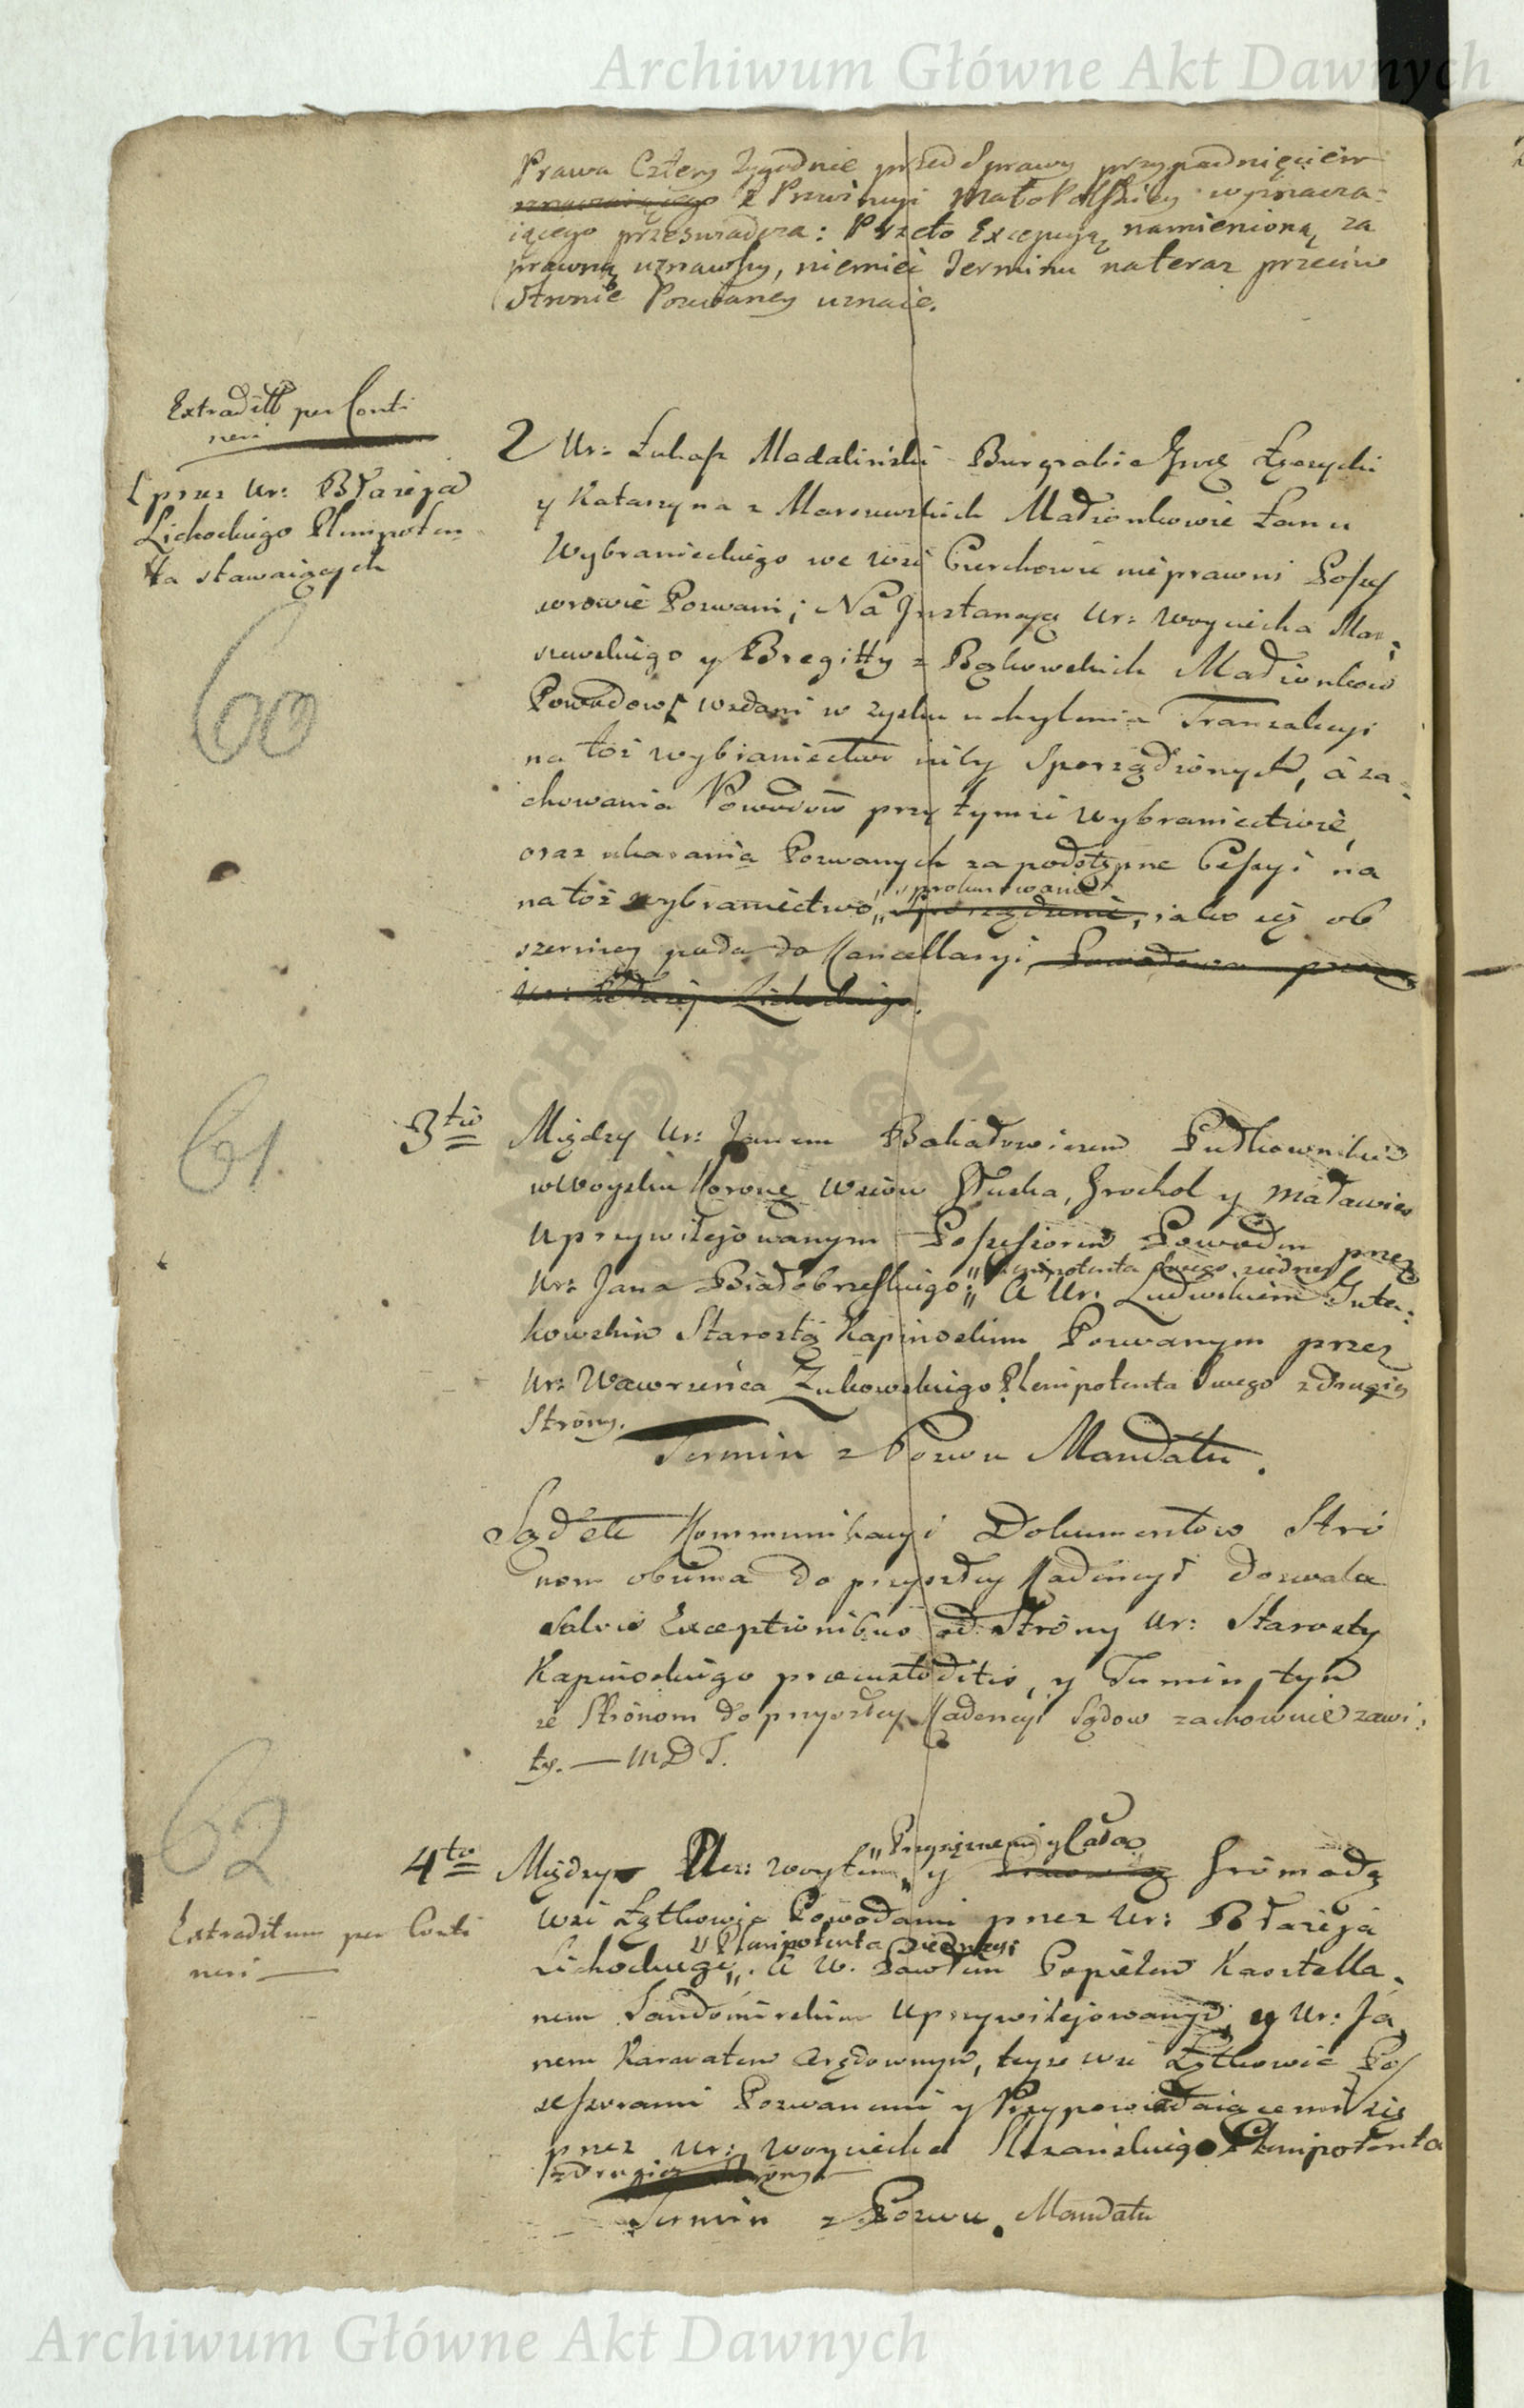 Archiwum Główne Akt Dawnych
Prawa Cztery Tygodnie przed Sprawy przypadnięciem
z Prowincyi Małopolskiey wyznacza-
iącego przeswiadcza: Przeto Excepcyą namienioną za
prawną uznawszy, niemieć Terminu nateraz przeciw
Stronie Pozwaney uznaie.
Extraditt per Conti
neri
przez Ur: Błażeja
Lichockiego Plenipoten
ta stawaiących
60
2 Ur: Łukasz Madaliński Burgrabia Grod Łęczycki
y Katarzyna z Marszewskich Małżonkowie Łanu
Wybranieckiego we wsi Cierchowie nieprawni Possess
orowie Pozwani; Na Jnstancyą Ur: Woyciecha Mar-
szewskiego y Bregitty z Bąkowskich Małżonkow
Powodow wzdani w zysku uchylenia Tranzakcyi
na toż wybraniectwo niby sporządzonych, á za-
chowania Powodow przy tymże wybraniectwie,
oraz ukarania Pozwanych za podstępne Cessyi na
prokurowanie
na toż wybraniectwo sporządzenie, iako się ob
szerniey poda do Kancellaryi Powodowie przez
Ur: Błażeja Lichockiego.
61
3tio Między Ur: Janem Bakałowiczem Pułkownikiem
w Woysku Koron Wsiów Głuska, Grochol y Maławies
Uprzywilejowanym Possessorem Powodem przez
Plenipotenta swego zjedney
Ur: Jana Białobrzeskiego; A Ur: Ludwikiem Gute-
kowskim Starostą Kapinoskim Pozwanym przez
Ur: Wawrzeńca Żukowskiego Plenipotenta swego z drugiey
Strony.
Termin z Pozwu Mandatu.
Sąd etc Kommunikacyi Dokumentow Stro
nom obuma do przyszłey Kadencyi dozwala
Salvis Exceptionibus od Strony Ur: Starosty
Kapinoskiego praecustoditis, y Termin tym
że Stronom do przyszłey Kadencyi Sądow zachowuie zawi-
ty. — MDT.
62
Przysiężnemi y Całą
4to Między Ucz: Woytem y Gromadą
Extraditum per Conti
neri
wsi Łętkowic Powodami przez Ur: Błażeja
Plenipotenta z iedney
Lichockiego. A W. Pawłem Popielem Kasztella-
nem Sandomirskim Uprzywilejowanym, y Ur: Ja
nem Karwatem Arędownym, teyże wsi Łętkowic Pos
sessorami Pozwanemi y Przypowiadaiącemi się
przez Ur: Woyciecha Plenipotenta
z drugiey Strony
Termin z Pozwu Mandatu
Archiwum Główne Akt Dawnych